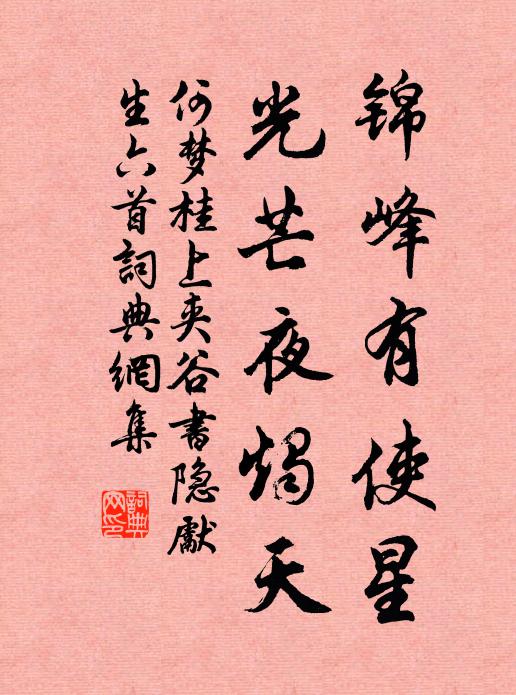 锦峰有使星
光芒夜烛天
何梦桂上夹谷书隐献
生六首詞典網集
詞典
网印